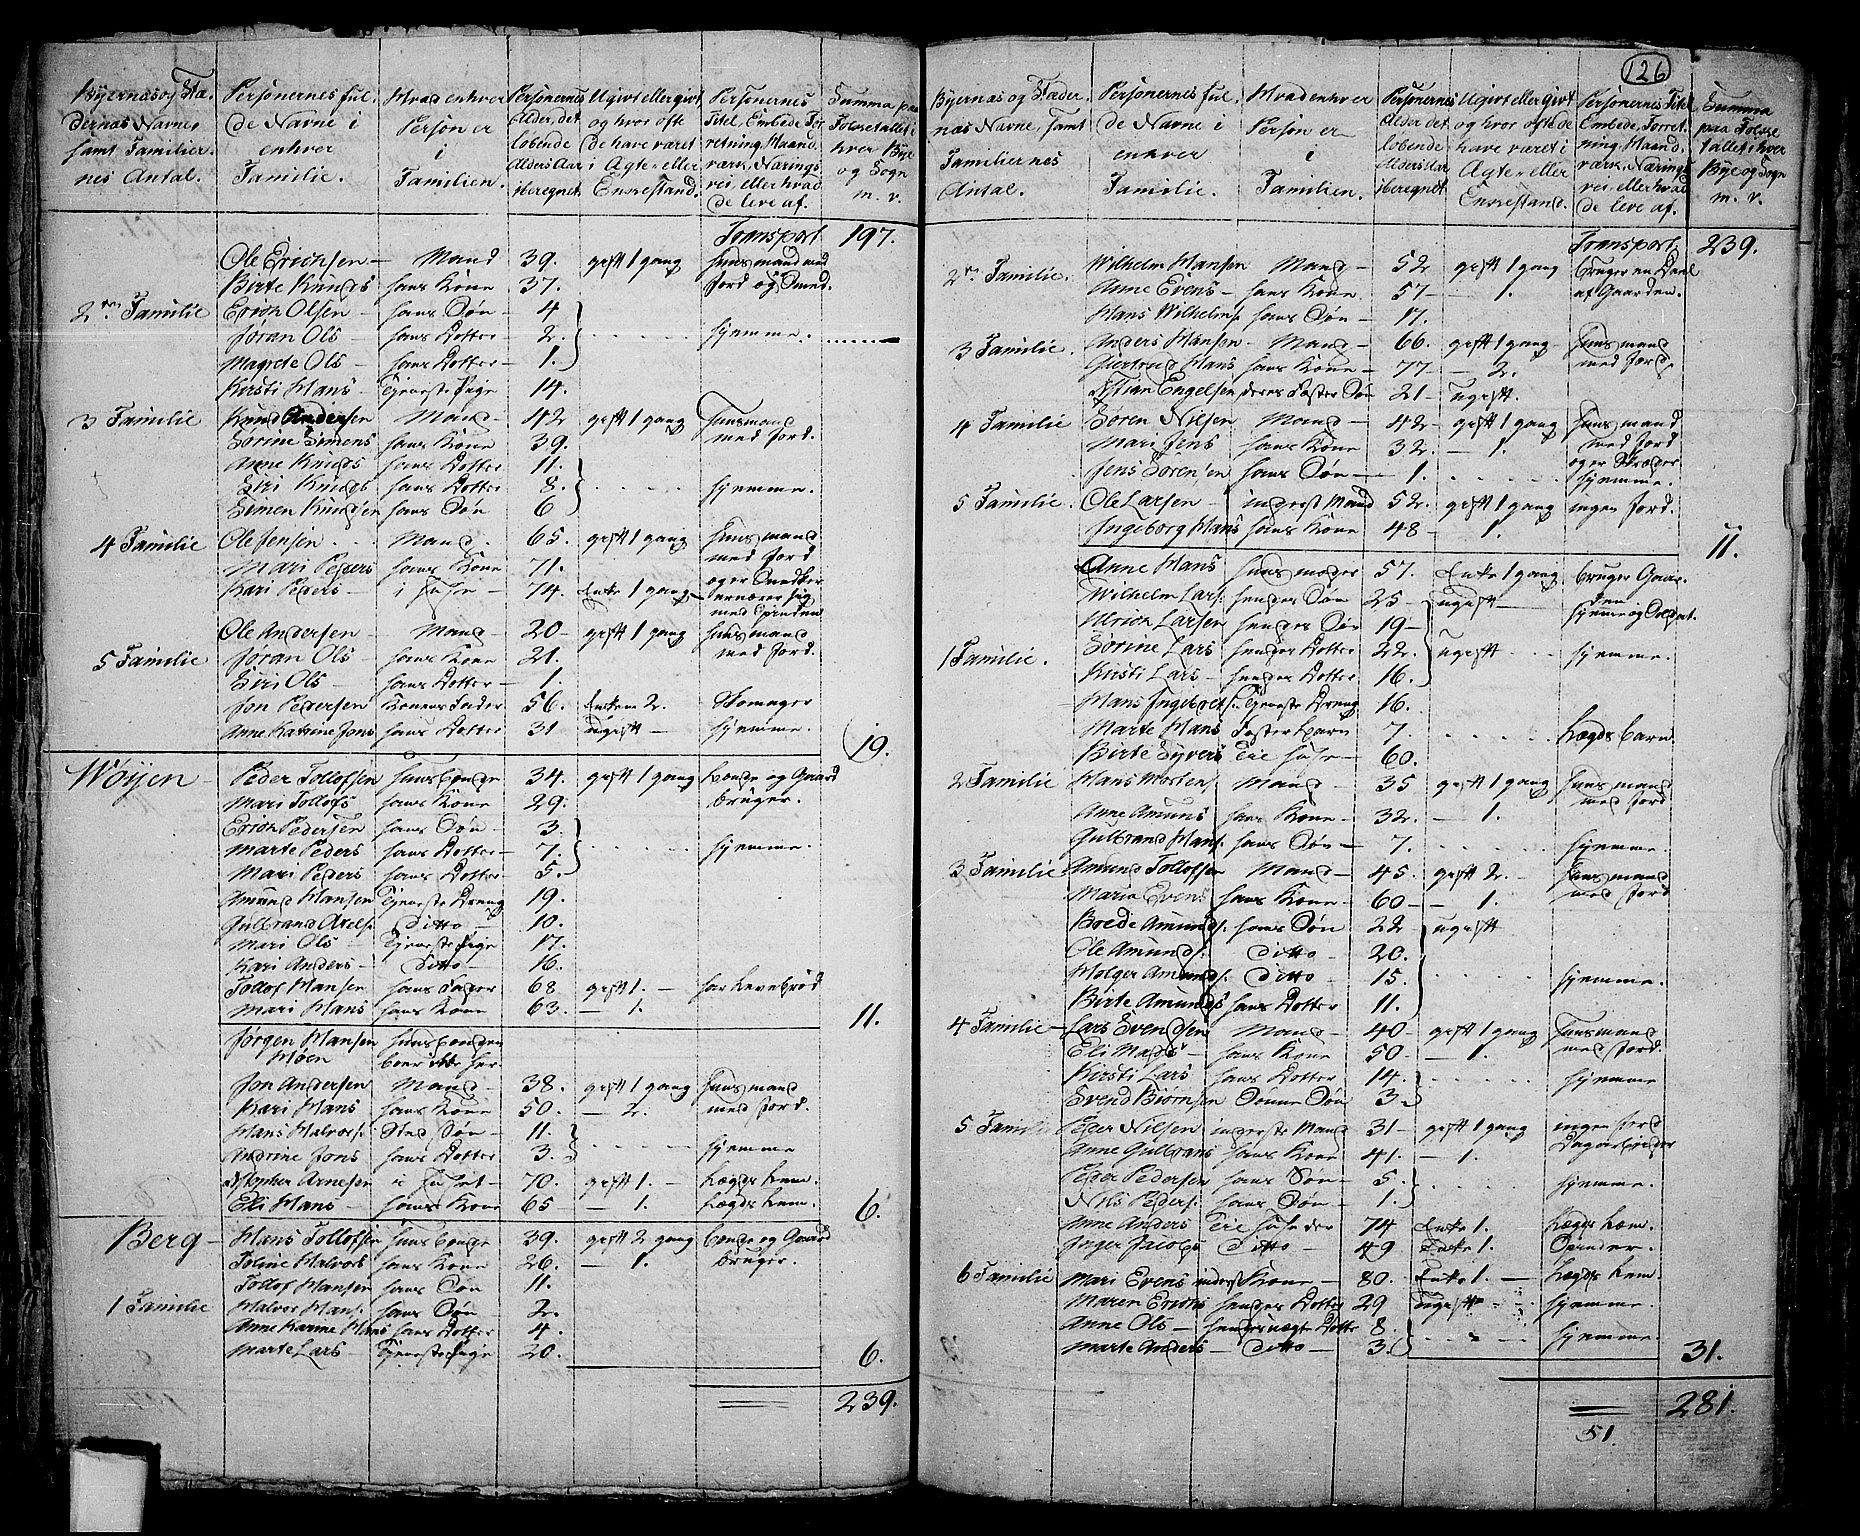 126
Byernes og Stædernes Navne, samt Familiernes Antal.
Personernes fulde Navne i enhver Familie.
Hvad enhver Person er i Familien.
Personernes Alder, det løbende Alders Aar iberegnet.
Ugivt eller givt, og hvor ofte de have været i Ægte- eller Enkestand.
Personernes Titel, Embede, Forretning, Haandværk, Næringsvei, eller hvad de leve af.
Summa paa Folketallet i hver Bye og Sogn m. v.
Transport 197.
Ole Erichsen - Mand 39. gift 1 gang Huusmand med
Birte Knuds hans Kone 37. Jord og Smed.
2den Familie Erich Olsen - hans Søn - 4
Joran Ols hans Dotter - 2. hjemme.
Magrete Ols hans Dotter - 1.
Kirsti Hans Tjeneste Pige 14.
3 Familie Knud Andersen Mand 42 gift 1 gang Huusmand
Sorine Simens hans Kone 39. med Jord.
Anne Knuds hans Dotter 11.
Siri Knuds hans Dotter 8. hjemme.
Simen Knudsen hans Søn 6
4 Familie Ole Jensen Mand 65. gift 1 gang Huusmand
Mari Peders hans Kone 71. med Jord
Kari Peders i Huset 74. Enke 1 gang
med Spinden
Ole Andersen - Mand 20 - gift 1 gang Huusmand
5 Familie Joran Ols - hans Kone 21. med Jord.
Siri Ols - hans Dotter - 1.
Jon Pedersen Konens Fader 56. Enkem 2. Skomager
Anne Katrine Jons hans Dotter 31 ugift - hjemme. 19.
Wøyen - Peder Tollofsen Huusbonde 34. gift 1 gang Bonde og Gaard
Mari Tollofs hans Kone 29. bruger.
Erich Pedersen hans Søn - 3.
Marte Peders hans Dotter - 7. hjemme.
Mari Peders hans Dotter - 5.
Amund Hansen Tjeneste Dreng 19.
Gulbrand Axels. Ditto - 10.
Mari Ols - Tjeneste Pige 17.
Kari Anders - Ditto - 16.
Tollof Hansen hans Fader 68 gift 1. - har Levebrød
Mari Hans hans Kone 63. - 1. 11.
Jørgen Hansen Huusbonden
Moen boer ikke her
Jon Andersen Mand 38. gift 1 gang Huusmand
Kari Hans hans Kone 50. - 2. med Jord.
Hans Halvors. Sted Søn - 11.
Andrine Jons hans Dotter 3. hjemme
Arnesen i Huset - 70. gift 1. Lægds Lem.
Eli Hans hans Kone 65 - 1. Lægds Lem. 6.
Berg - Hans Tollofsen Huusbonde 39. gift 2 gang Bonde og Gaard
Toline Halvors hans Kone 26. - 1. bruger.
Tollof Hansen hans Søn 11.
1 Familie Halvor Hans. hans Søn 2.
Anne Karine Hans hans Dotter 4.
Marte Lars - Tjeneste Pige 20. 6.
239.
Byernes og Stædernes Navne, samt Familiernes Antal.
Personernes fulde Navne i enhver Familie.
Hvad enhver Person er i Familien.
Personernes Alder det løbende Alders Aar iberegnet.
Ugivt eller givt, og hvor ofte de have været i Ægte- eller Enkestand.
Personernes Titel, Embede, Forretning, Haandværk, Næringsvei, eller hvad de leve af.
Summa paa Folketallet i hver Bye og Sogn m. v.
Transport 239.
2den Familie. Wilhelm Hansen Mand - 52 gift 1 gang bruger en Deel
Anne Evens - hans Kone 57 - 1. af Gaarden.
Hans Wilhelms. hans Søn - 17.
3 Familie. Anders Hansen - Mand - 66. gift 1 gang Huusmand
Giertrud Hans hans Kone - 77 - 2. med Jord.
Engelsen deres Foster Søn 21 - Ugift.
4 Familie. Søren Nilsen Mand - 42 - gift 1 gang Huusmand
Mari Jens hans Kone 32. - 1. med Jord
Jens Sørensen hans Søn - 1. og er Skræder hjemme.
5 Familie. Ole Larsen - inderst Mand 52. gift 1 gang ingen Jord.
Ingeborg Hans hans Kone 48 - 1. 11.
Anne Hans Huusmoder 57. Enke 1 gang bruger Gaarden
Wilhelm Lars. hendes Søn 25 - ugift - hjemme og Soldat.
Ulrich Larsen hendes Søn 19 -
1 Familie. Sorine Lars hendes Dotter 22. ugift hjemme.
Kirsti Lars - hendes Dotter 16.
Hans Ingebrets. Tjeneste Dreng 16.
Marte Hans Fosterbarn 7. Lægds barn.
Birte Syvers Huse - 60.
2 Familie Hans Morten Mand 35 gift 1 gang Huusmand
med Jord
Anne Amunds hans Kone - 32. - 1.
Gulbrand Hans. hans Søn - 7. hjemme.
3 Familie Amund Tollofsen Mand - 45. gift 2. Huusmand
Marie Evens hans Kone - 60 - 1. med Jord
Brede Amunds. hans Søn 22 - ugift
Ole Amunds. Ditto - 20.
Holger Amunds. Ditto - 15. hjemme.
Birte Amunds hans Dotter 11.
4 Familie - Lars Svendsen Mand - 40 - gift 1 gang Huusmand
Eli Mads - hans Kone 50 - 1. med Jord.
Kirsti Lars hans Dotter 14. hjemme
Svend Biørnsen Sønne Søn 3.
5 Familie Peder Nilsen inderste Mand 31 - gift 1 gang ingen Jord
Anne Gulbrans hans Kone 41. - 1. Dagarbeider
Peder Pedersen hans Søn - 5. hjemme.
Nils Peders. hans Søn 1.
Anne Anders 74 Enke 1. Lægds Lem.
Inger Jacobs Ditto - 49 Enke 1. Spinder.
6 Familie Mari Evens inderst Kone - 80. Enke 1. - Lægds Lem.
Maren Erichs hendes Dotter 29 ugift - hjemme.
Anne Ols - hendes uægte Dotter 8. hjemme.
Marte Anders - Ditto - 3. 31.
281.
51.